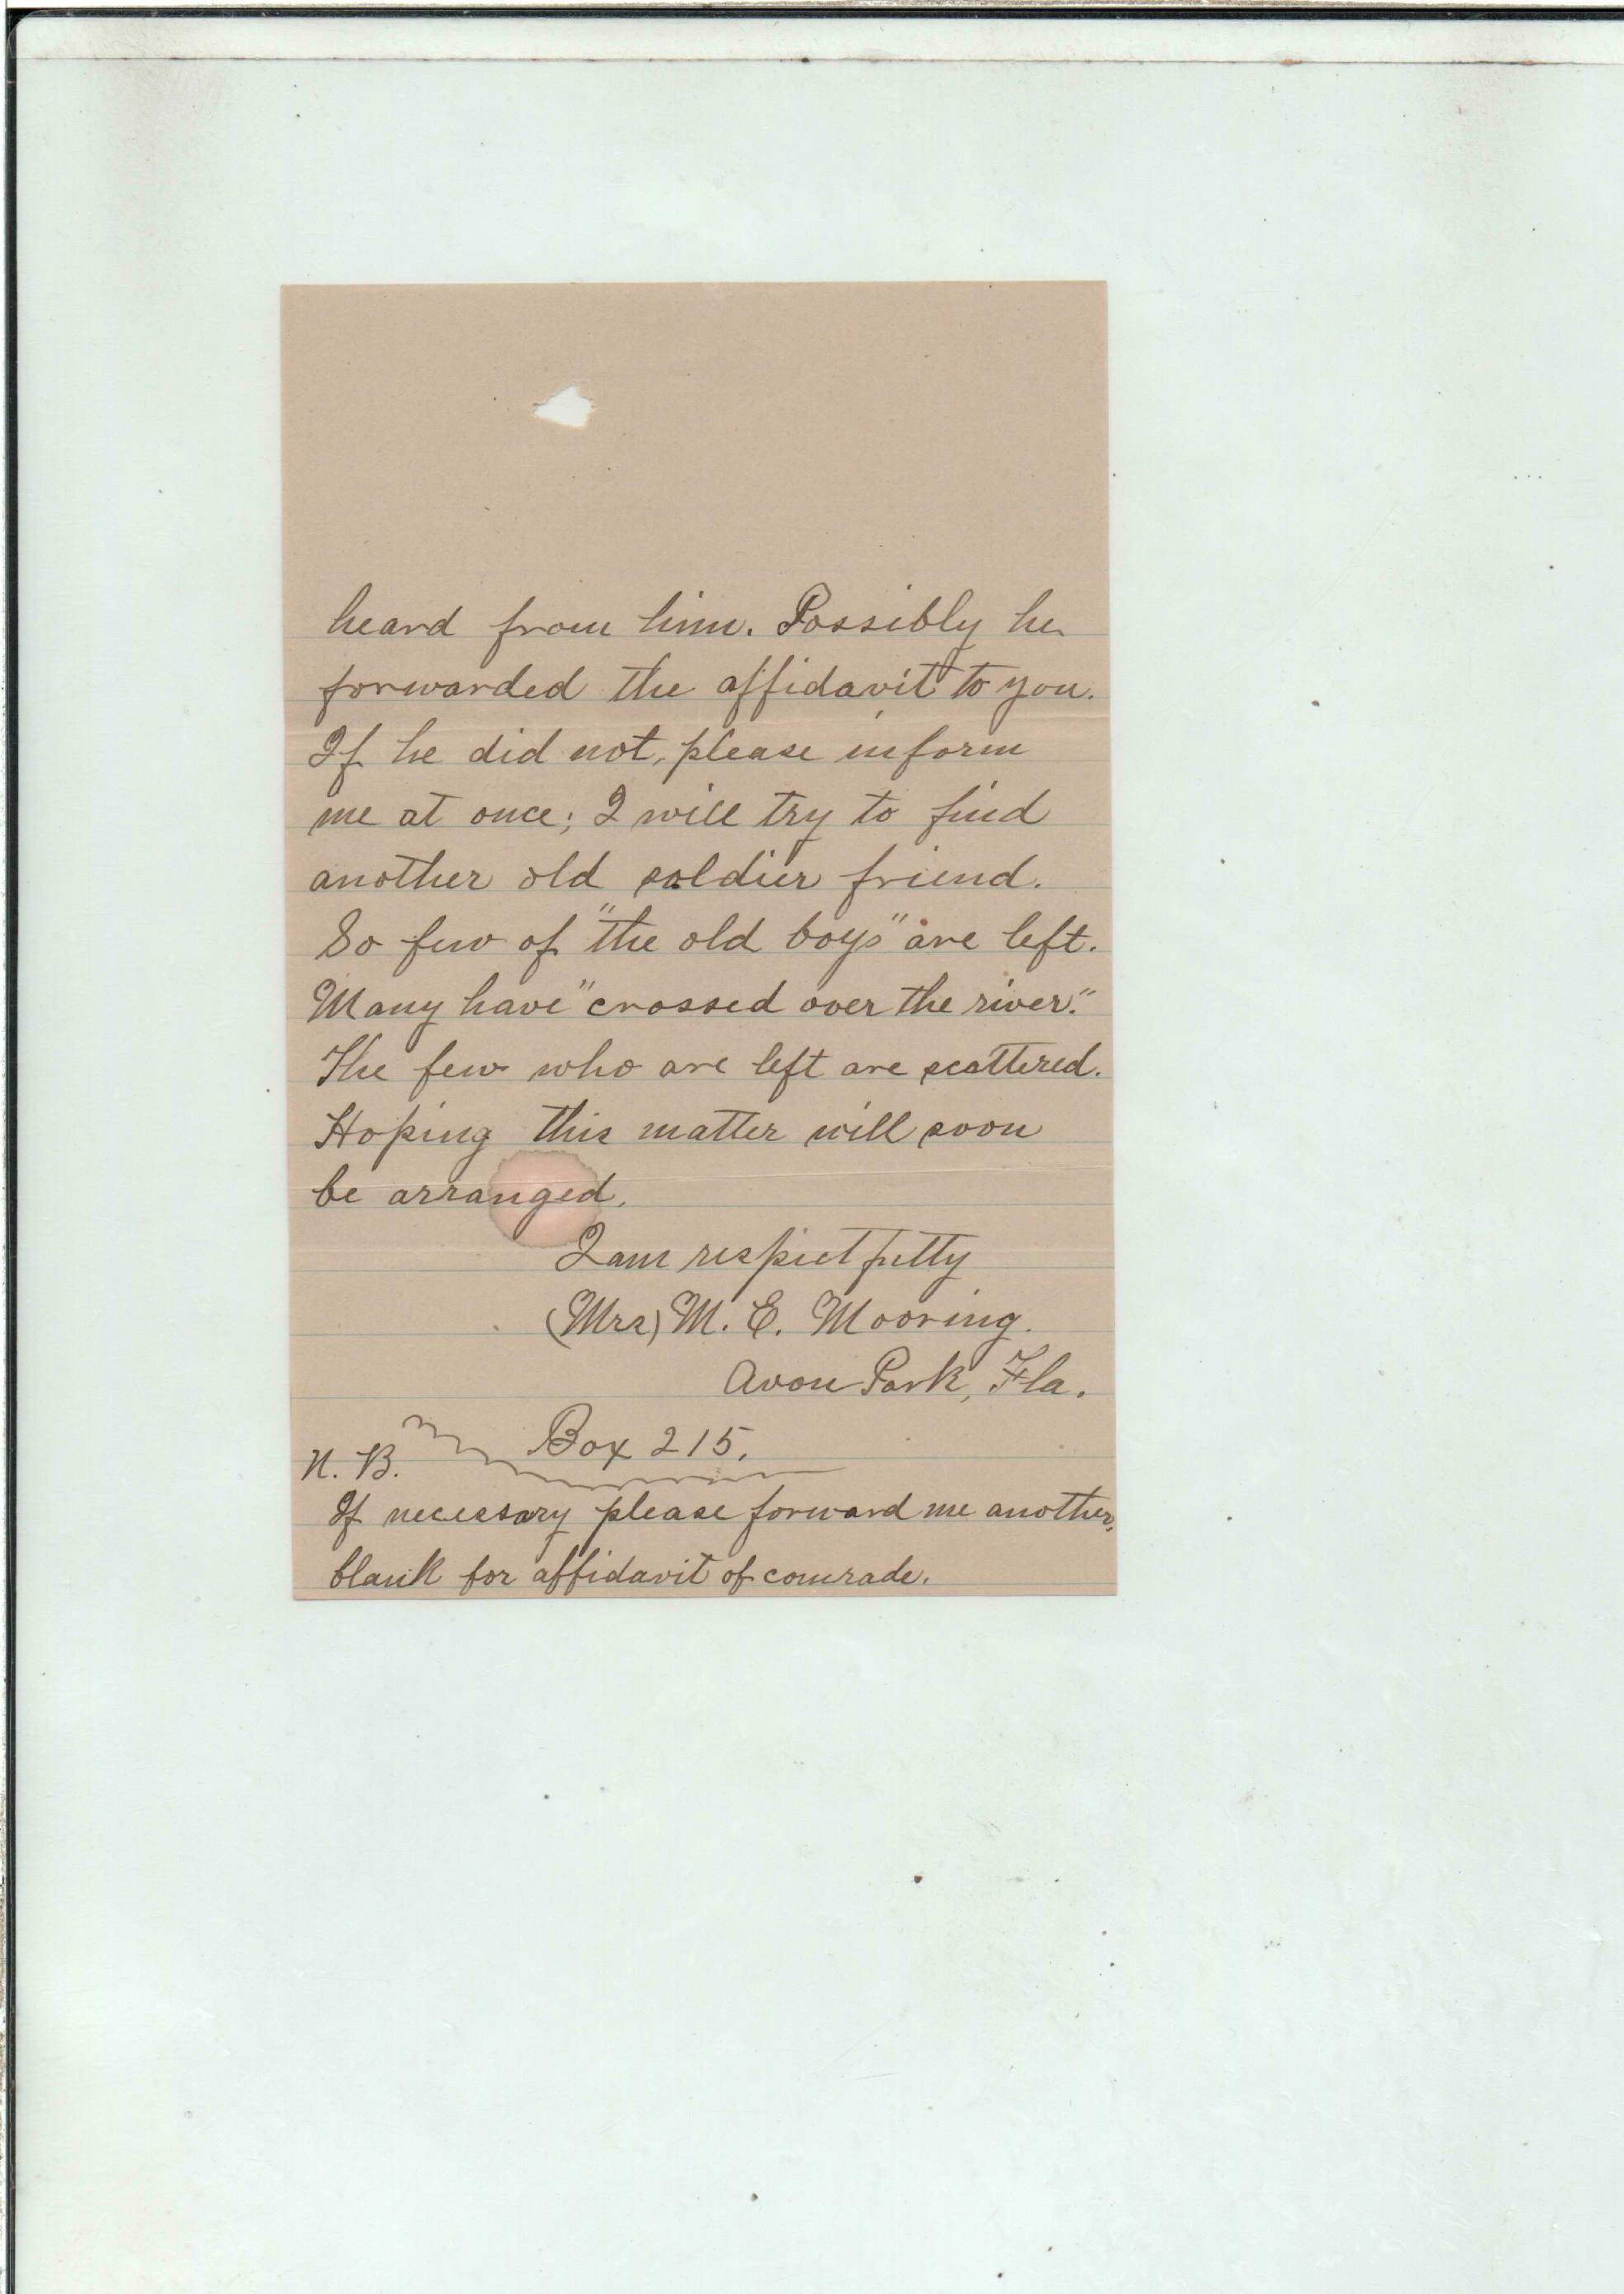 heard from him. Possibly he
forwarded the affidavit to you.
If he did not, please inform
me at once; I will try to find
another old soldier friend.
So few of "the old boys" are left.
Many have "crossed over the river."
The few who are left are scattered.
Hoping this matter will soon
be arranged.
I am respectfully
(Mrs) M. E. Mooring.
Avon Park, Fla.
Box 215.
N. B.
If necessary please forward me another
blank for affidavit of comrade.